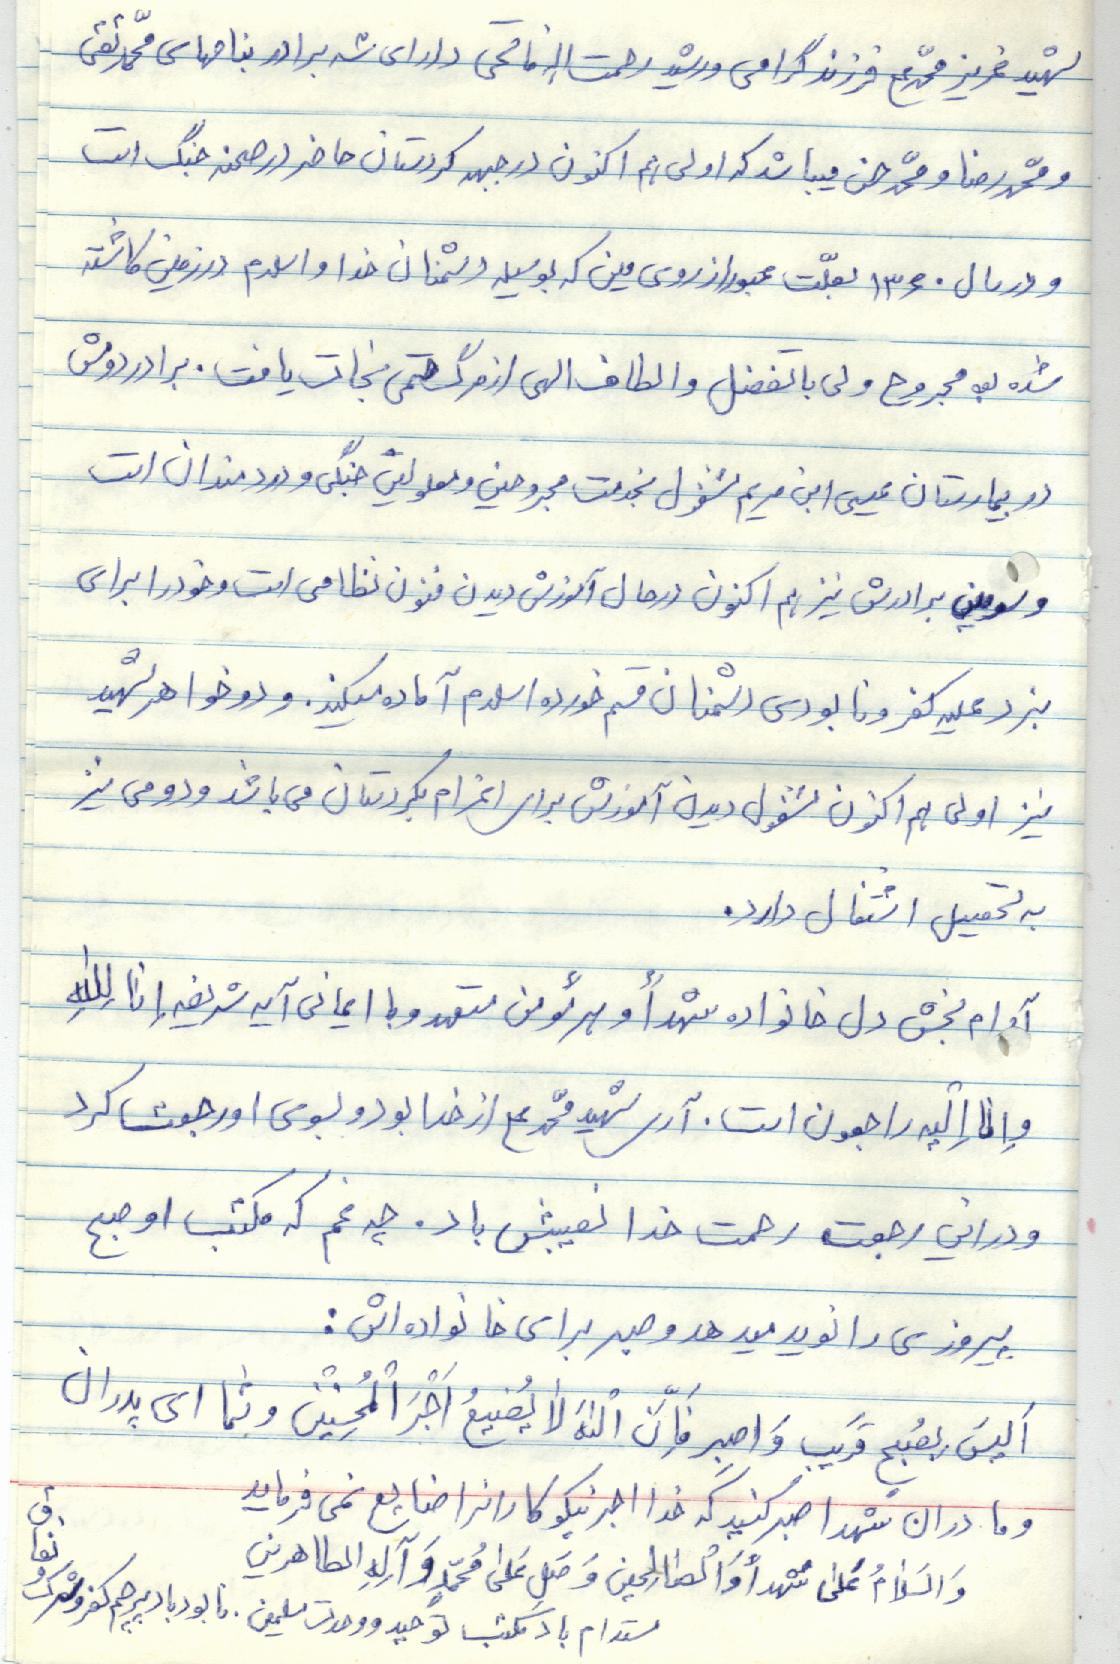 شهید عزیز محمد ع فرزند گرامی و رشید رحمت اله فاتحی دارای سه برادر بنامهای محمد تقی
و محمد رضا و محمد حسن میباشد که اولی هم اکنون در جبهه کردستان حاضر در صحنه جنگ است
و در سال ۱۳۶۰ بعلّت عبور از روی مین که بوسیله دشمنان خدا و اسلام در زمین کاشته
شده بود مجروح ولی با تفضل و الطاف الهی از مرگ حتمی نجات یافت. برادر دومش
در بیمارستان عیسی ابن مریم مشغول بخدمت مجروحین و معلولین جنگی و دردمندان است
و سومین برادرش نیز هم اکنون در حال آموزش دیدن فنون نظامی است و خود را برای
نبرد علیه کفر و نابودی دشمنان قسم خورده اسلام آماده میکند. و دو خواهر شهید
نیز اولی هم اکنون مشغول دیدن آموزش برای اعزام بکردستان می باشد و دومی نیز
به تحصیل اشتغال دارد.
آرام بخش دل خانواده شهدأ و هر مؤمن متعهد و با ایمانی آیه شریفه اِنا لِلّٰهِ
وَ اِنا اِلَیه راجعون است. آری شهید محمّد ع از خدا بود و بسوی او رجعت کرد
و در این رجعت رحمت خدا نصیبش باد. چه غم که مکتب او صبح
پیروزی را نوید میدهد و صبر برای خانواده اش:
اَلَیسَ بِصُبحِ قَریب وَ اصبِر فَاِنَّ اللّٰهَ لا یُضیعُ اَجْرَ الْمُحسِنین و شما ای پدران
و مادران شهدا صبر کنید که خدا اجر نیکوکاران را ضایع نمی فرماید
وَ السَلامُ عَلی شهدأ وَ الصالحین وَ صَلِ عَلی مُحَمّدٍ وَ آلِهِ الطاهرین
مستدام باد مکتب توحید و وحدت مسلمین. نابود باد پرچم کفر و شرک و
نفاق